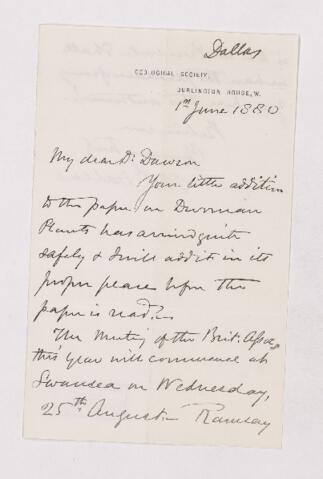 Dallas
GEOLOGICAL SOCIETY,
BURLINGTON HOUSE, W.
1st June 1880
My dear Dr. Dawson
Your little addition
to the paper on Devonian
Plants has arrived quite
safely & I will add it in its
proper place before the
paper is read.
The Meeting of the Brit. Assoc.
this year will commence at
Swansea on Wednesday,
25th August – Ramsay